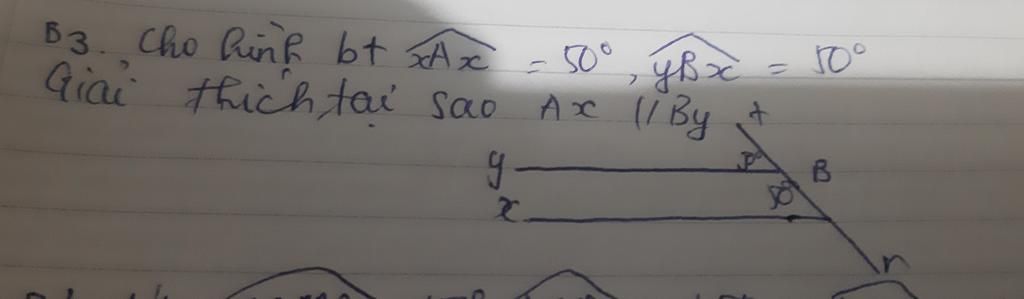 B3. Cho hình bt xAx = 50°, yBx = 50°
Giải thích, tại sao Ax // By
t
y 50° B
50°
x
n